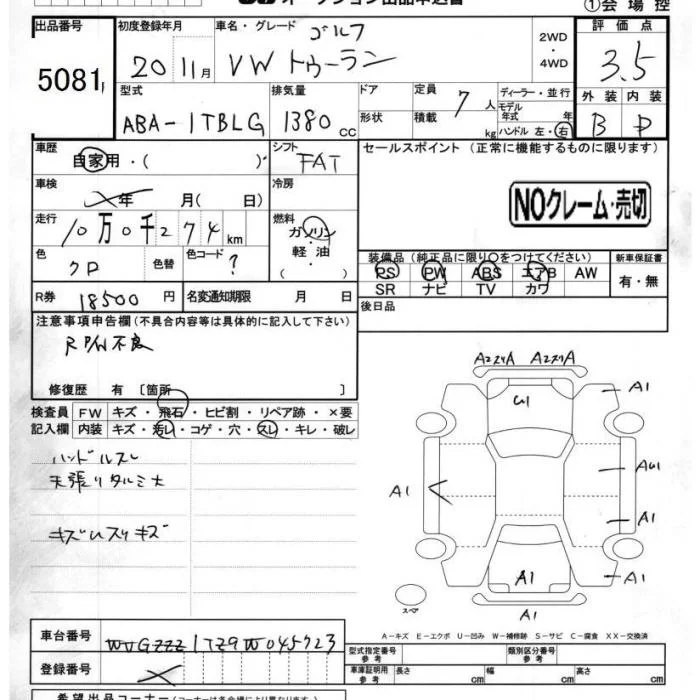 オークション出品申込書
①会場控
出品番号 初度登録年月 車名・グレード ゴルフ 2WD・4WD 評価点
5081 20 11月 VW トゥーラン 3.5
型式 排気量 ドア 定員 7人 ディーラー・並行 外装 内装
ABA-1TBLG 1380cc 形状 積載 kg モデル年式 年 ハンドル 左・右 B D
車歴 自家用・( ) シフト FAT セールスポイント (正常に機能するものに限ります)
車検 年 月( 日) 冷房
NOクレーム・売切
走行 10万0千274km 燃料 ガソリン・軽油・( )
色 クロ 色替 色コード ?
装備品(純正品に限り○をつけてください) 新車保証書
PS PW ABS エアB AW 有・無
SR ナビ TV カワ
R券 18500円 名変通知期限 月 日 後日品
注意事項申告欄(不具合内容等は具体的に記入して下さい)
R P/W不良
修復歴 有 〔箇所 〕
検査員 FW キズ・飛石・ヒビ割・リペア跡・×要
記入欄 内装 キズ・汚レ・コゲ・穴・スレ・キレ・破レ
ハンドルスレ
天張りタルミ大
A1
A1
A1
A1
A1
A1
スペ
A-キズ E-エクボ U-凹み W-補修跡 S-サビ C-腐食 XX-交換済
車台番号 WVGZZZ1TZ9W045723
登録番号
型式指定番号 参考 類別区分番号 参考
車証明用 参考 長さ cm 幅 cm 高さ cm
希望出品コーナー